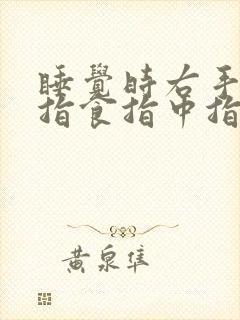 睡覺時右手
指食指中指
黃泉隼